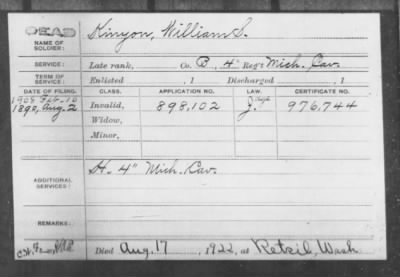 DEAD
NAME OF SOLDIER: Kinyon, William S.
SERVICE: Late rank, Co. B, 4" Reg't Mich. Cav.
TERM OF SERVICE: Enlisted , 1 Discharged , 1
DATE OF FILING. CLASS. APPLICATION NO. LAW. CERTIFICATE NO.
1908 Feb. 10
1890, Aug. 2 Invalid, 898,102 J. 976,744
Widow,
Minor,
ADDITIONAL SERVICES: H. 4" Mich. Cav.
REMARKS:
Died Aug. 17, 1922, at Retsil, Wash.